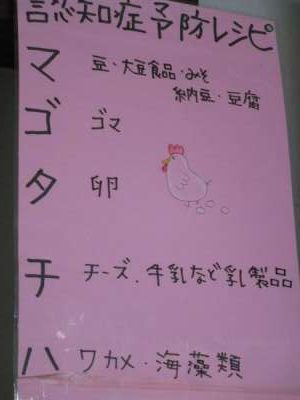 認知症予防レシピ
マ 豆・大豆食品・みそ
納豆・豆腐
ゴ ゴマ
タ 卵
チ チーズ、牛乳など乳製品
ハ ワカメ・海藻類